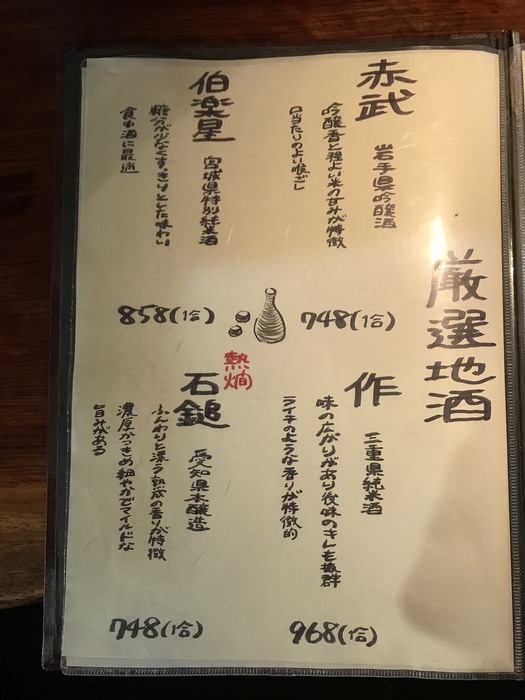 厳選地酒
赤武
岩手県吟醸酒
吟醸香と程よい米の甘みが特徴
口当たりのよい喉ごし
748(1合)
伯楽星
宮城県特別純米酒
糖分が少なくすっきりとした味わい
食中酒に最適
858(1合)
作
三重県純米酒
味の広がりがあり後味のキレも抜群
ライチのような香りが特徴的
968(1合)
熱燗
石鎚
愛知県本醸造
ふんわりと漂う熟成の香りが特徴
濃厚かつきめ細やかでマイルドな
旨みがある
748(1合)